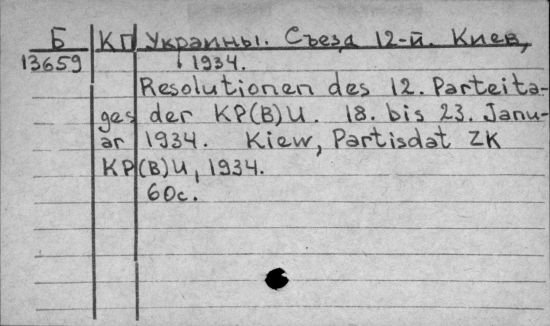 Б КП Украины. Съезд 12-й. Киев,
13659 1934.
Resolutionen des 12. Parteita-
ges der KP(B)U. 18. bis 23. Janu-
ar 1934. Kiew, Partisdat ZK
KP(B)U, 1934.
60с.